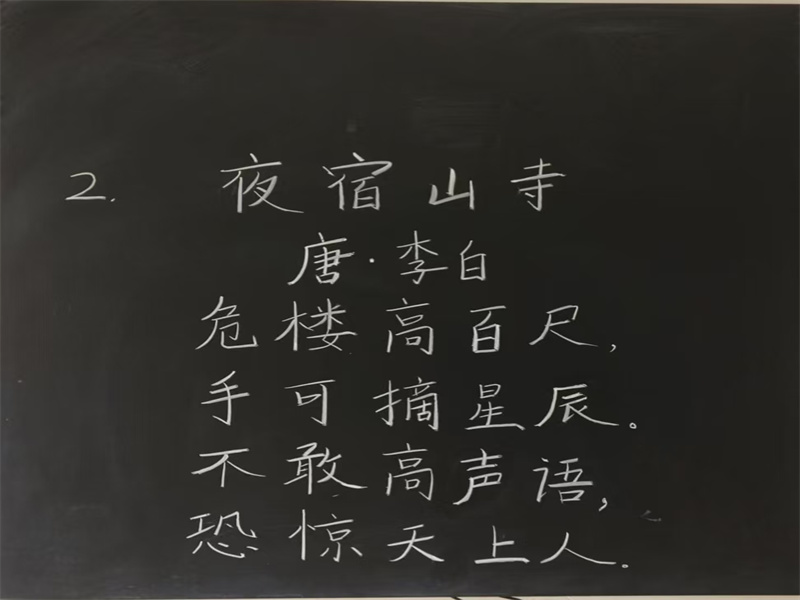 2. 夜宿山寺
唐·李白
危楼高百尺,
手可摘星辰。
不敢高声语,
恐惊天上人.